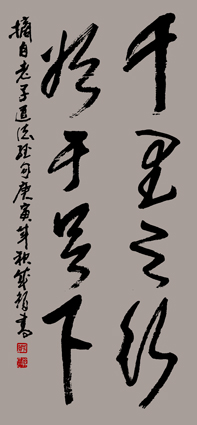 千里之行
始于足下
摘自老子道德经句庚寅年秋書